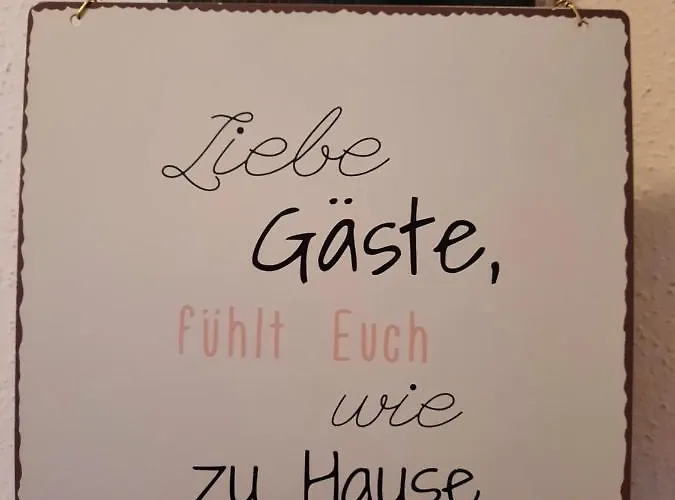 Liebe
Gäste,
fühlt Euch
wie
zu Hause